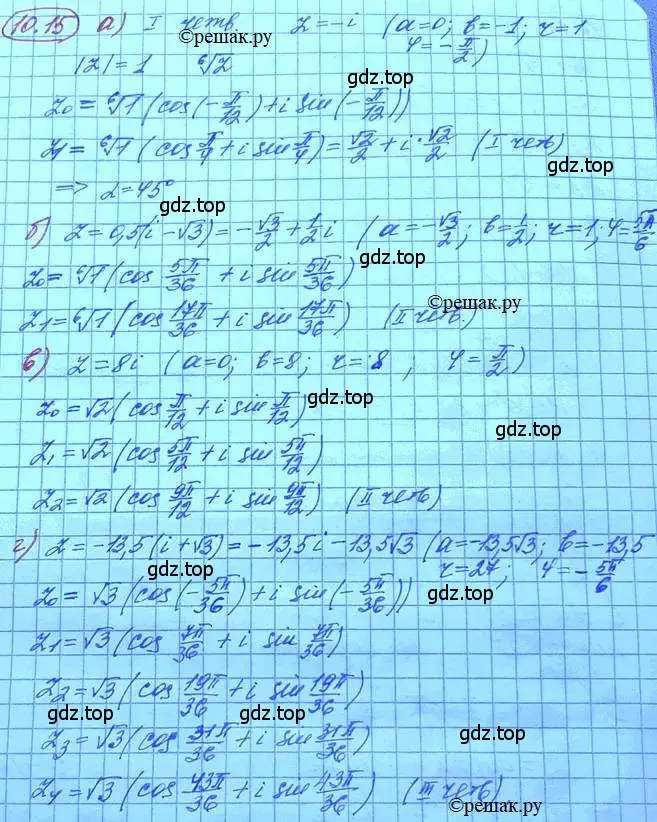 10.15 а) I четв. z = -i (a=0; b=-1; r=1
©решак.ру
φ = -π/2)
|z| = 1 ⁶√z
gdz.top
z₀ = ⁶√1 (cos(-π/12) + i sin(-π/12))
z₁ = ⁶√1 (cos π/4 + i sin π/4) = √2/2 + i·√2/2 (I четв)
gdz.top
=> α = 45°
gdz.top
б) z = 0,5(i - √3) = -√3/2 + 1/2 i (a = -√3/2; b = 1/2; r = 1; φ = 5π/6
z₀ = ⁶√1 (cos 5π/36 + i sin 5π/36)
gdz.top
z₁ = ⁶√1 (cos 17π/36 + i sin 17π/36) (II четв.)
©решак.ру
в) z = 8i (a=0; b=8; r=8; φ = π/2)
z₀ = √2 (cos π/12 + i sin π/12)
gdz.top
z₁ = √2 (cos 5π/12 + i sin 5π/12)
gdz.top
z₂ = √2 (cos 9π/12 + i sin 9π/12) (II четв)
г) z = -13,5(i + √3) = -13,5i - 13,5√3 (a = -13,5√3; b = -13,5
gdz.top
r = 27; φ = -5π/6
z₀ = √3 (cos(-5π/36) + i sin(-5π/36))
gdz.top
z₁ = √3 (cos 7π/36 + i sin 7π/36)
z₂ = √3 (cos 19π/36 + i sin 19π/36)
gdz.top
gdz.top
z₃ = √3 (cos 31π/36 + i sin 31π/36)
gdz.top
z₄ = √3 (cos 43π/36 + i sin 43π/36) (III четв)
©решак.ру